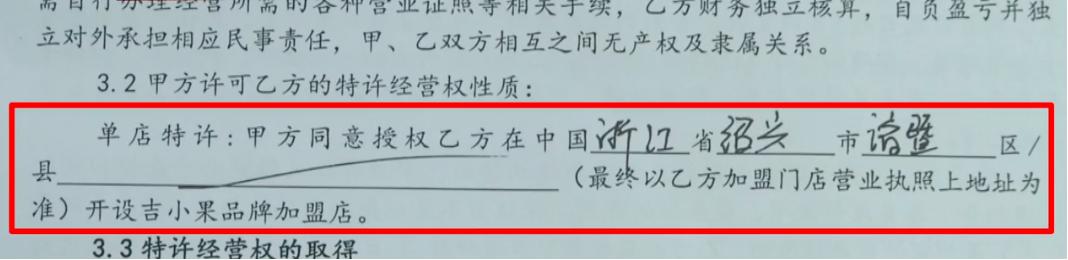 需自行办理经营所需的各种营业证照等相关手续，乙方财务独立核算，自负盈亏并独
立对外承担相应民事责任，甲、乙双方相互之间无产权及隶属关系。
3.2 甲方许可乙方的特许经营权性质：
单店特许：甲方同意授权乙方在中国浙江省绍兴市诸暨区/
县（最终以乙方加盟门店营业执照上地址为
准）开设吉小果品牌加盟店。
3.3 特许经营权的取得